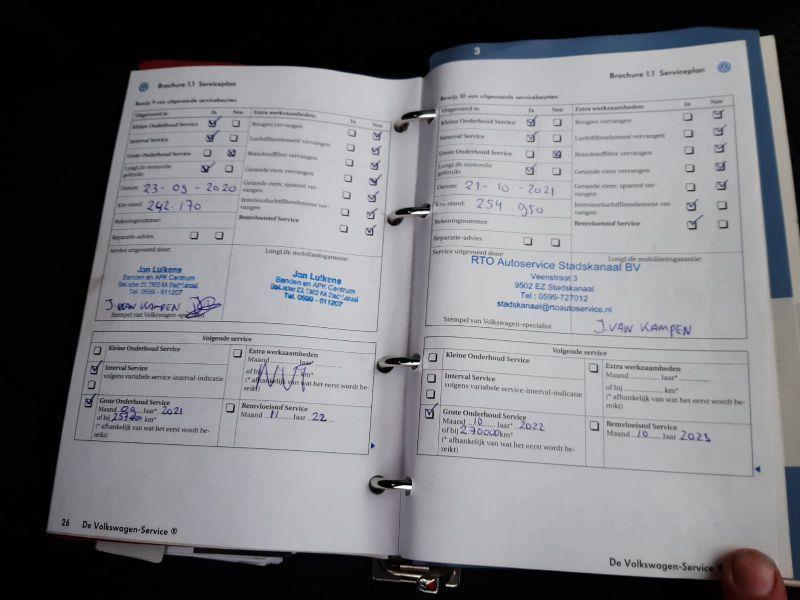 Brochure 1.1 Serviceplan
Bewijs 9 van uitgevoerde servicebeurten
Uitgevoerd is: Ja Nee Extra werkzaamheden: Ja Nee
Kleine Onderhoud Service
Interval Service
Grote Onderhoud Service
LongLife motorolie
gebruikt
Datum: 23-09-2020
Km-stand: 242.170
Rekeningnummer:
Reparatie-advies
Bougies vervangen
Luchtfilterelement vervangen
Brandstoffilter vervangen
Getande riem vervangen
Getande riem: spanrol ver-
vangen
Interieurluchtfilterelement ver-
vangen
Remvloeistof Service
Service uitgevoerd door:
LongLife mobiliteitsgarantie:
Jan Luikens
Banden en APK Centrum
Tel. 0599 - 611207
Jan Luikens
Banden en APK Centrum
Tel. 0599 - 611207
J. VAN KAMPEN
Stempel van Volkswagen-specialist
Volgende service
Kleine Onderhoud Service
Interval Service
volgens variabele service-interval-indicatie
Grote Onderhoud Service
Maand 09 Jaar* 2021
of bij km*
(* afhankelijk van wat het eerst wordt be-
reikt)
Extra werkzaamheden
Maand Jaar
of bij km*
(* afhankelijk van wat het eerst wordt be-
reikt)
Remvloeistof Service
Maand 11 Jaar 22
26 De Volkswagen-Service ®
3
Brochure 1.1 Serviceplan
Bewijs 10 van uitgevoerde servicebeurten
Uitgevoerd is: Ja Nee Extra werkzaamheden: Ja Nee
Kleine Onderhoud Service
Interval Service
Grote Onderhoud Service
LongLife motorolie
gebruikt
Datum: 21-10-2021
Km-stand: 254.950
Rekeningnummer:
Reparatie-advies
Bougies vervangen
Luchtfilterelement vervangen
Brandstoffilter vervangen
Getande riem vervangen
Getande riem: spanrol ver-
vangen
Interieurluchtfilterelement ver-
vangen
Remvloeistof Service
Service uitgevoerd door:
LongLife mobiliteitsgarantie:
RTO Autoservice Stadskanaal BV
Veenstraat 3
9502 EZ Stadskanaal
Tel : 0599-727012
stadskanaal@rtoautoservice.nl
Stempel van Volkswagen-specialist
J. VAN KAMPEN
Volgende service
Kleine Onderhoud Service
Interval Service
volgens variabele service-interval-indicatie
Grote Onderhoud Service
Maand 10 Jaar* 2022
of bij 270000 km*
(* afhankelijk van wat het eerst wordt be-
reikt)
Extra werkzaamheden
Maand Jaar*
of bij km*
(* afhankelijk van wat het eerst wordt be-
reikt)
Remvloeistof Service
Maand 10 Jaar 2023
De Volkswagen-Service ®